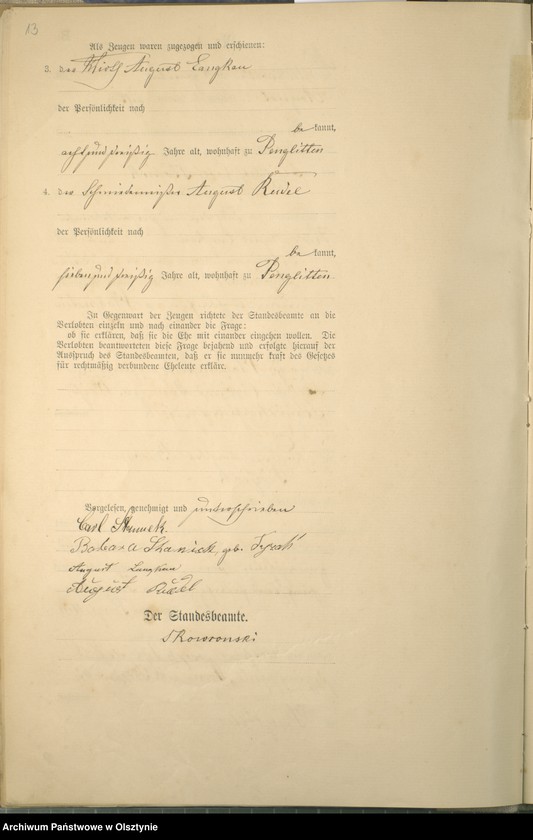 13
Als Zeugen waren zugezogen und erschienen:
3. der Wirth August Langkau
der Persönlichkeit nach
be kannt,
achtunddreißig Jahre alt, wohnhaft zu Penglitten
4. der Schmiedemeister August Rudel
der Persönlichkeit nach
be kannt,
siebenunddreißig Jahre alt, wohnhaft zu Penglitten.
In Gegenwart der Zeugen richtete der Standesbeamte an die
Verlobten einzeln und nach einander die Frage:
ob sie erklären, daß sie die Ehe mit einander eingehen wollen. Die
Verlobten beantworteten diese Frage bejahend und erfolgte hierauf der
Ausspruch des Standesbeamten, daß er sie nunmehr kraft des Gesetzes
für rechtmäßig verbundene Eheleute erkläre.
Vorgelesen, genehmigt und unterschrieben
Carl
Barbara geb.
August Langkau
August Rudel
Der Standesbeamte.
Skowronski
Archiwum Państwowe w Olsztynie